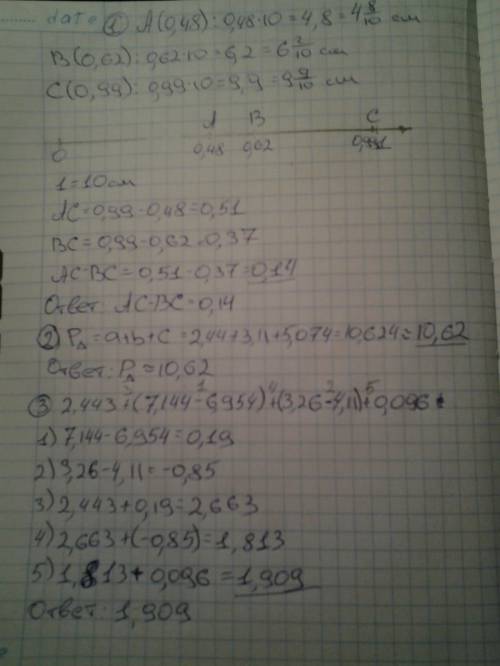 date
① A(0,48): 0,48·10=4,8=4 8/10 см
B(0,62): 0,62·10=6,2=6 2/10 см
C(0,99): 0,99·10=9,9=9 9/10 см
A B C
0 0,48 0,62 1
1=10см
AC=0,99-0,48=0,51
BC=0,99-0,62=0,37
AC-BC=0,51-0,37=0,14
Ответ: AC-BC=0,14
② P△=a+b+c=2,44+3,11+5,074=10,624≈10,62
Ответ: P△≈10,62
3 1 4 2 5
③ 2,443+(7,144-6,954)+(3,26-4,11)+0,096
1) 7,144-6,954=0,19
2) 3,26-4,11=-0,85
3) 2,443+0,19=2,663
4) 2,663+(-0,85)=1,813
5) 1,813+0,096=1,909
Ответ: 1,909